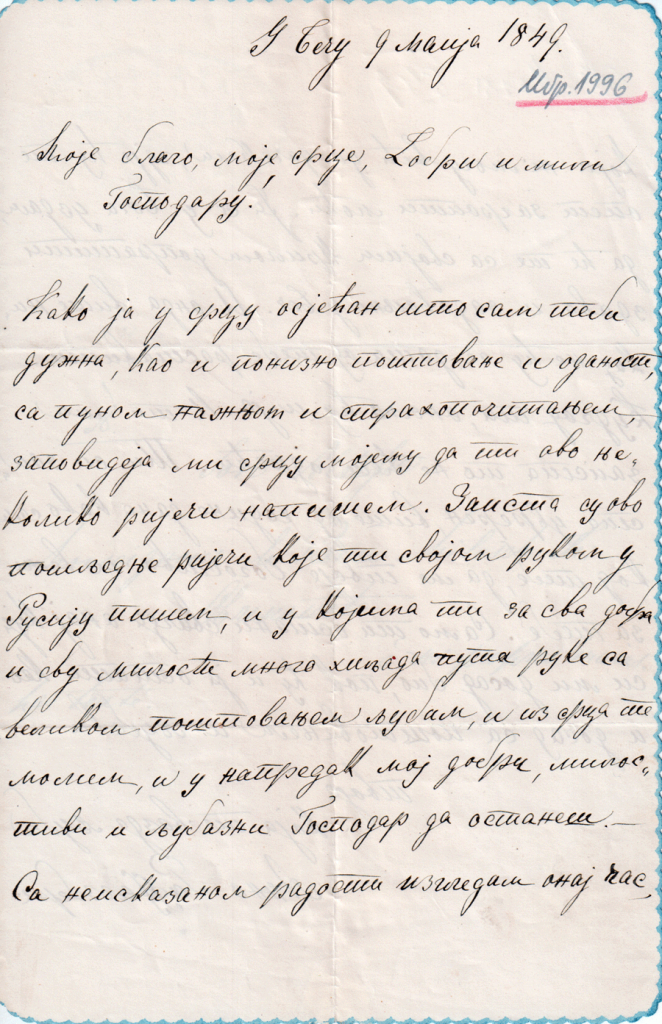 У Бечу 9 маија 1849.
Ибр. 1996
Моје благо, моје срце, Добри и мили
Господару!
Како ја у срцу осјећан што сам теби
дужна, Као и понизно поштоване и оданост,
са пуном нажњом и страхопочитањем,
заповидеја ми срцу мојему да ти ово ње„
колико ријечи напишем. Заиста су ово
пошљедње ријечи које ти својом руком у
Русију пишем, и у којима ти за сва добра
и сву милост много хиљада пута руке са
великом поштовањем љубим, и из срца те
молим, и у напредак мој добри, милос„
тиви и љубазни Господар да останеш. —
Са неисказаном радости изгледам онај час,